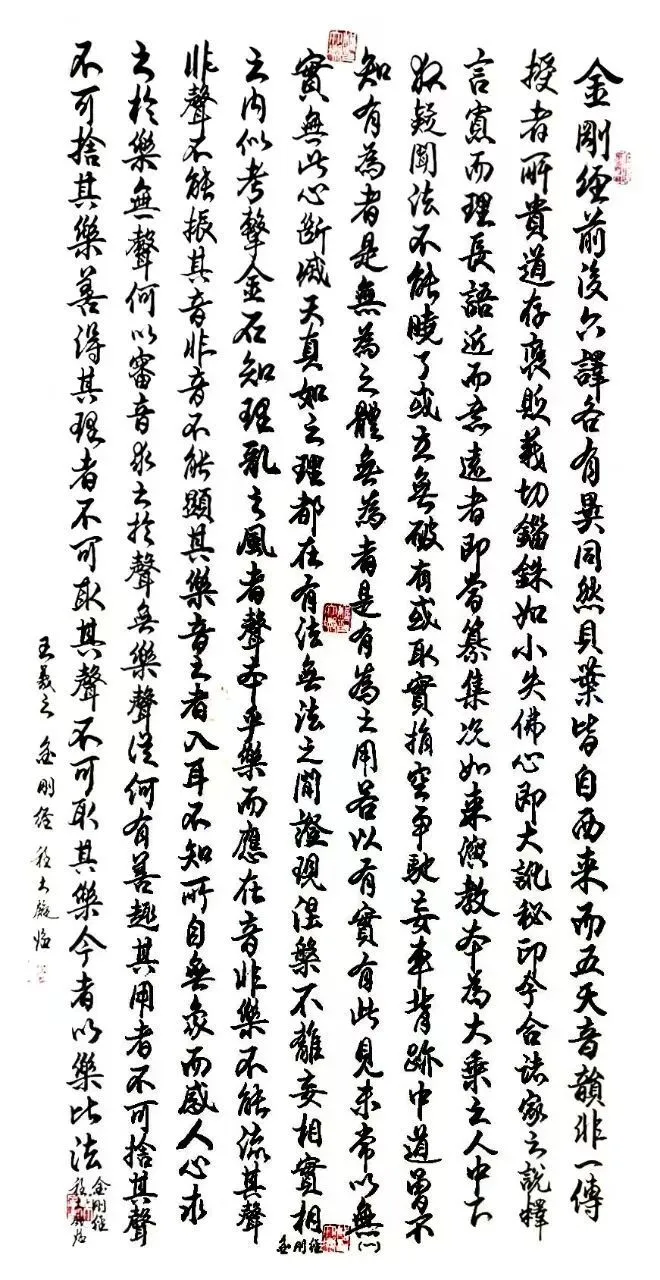 金剛經前後六譯各有異同然貝葉皆自西来而五天音韻非一傳
授者所貴道存褒貶義切錙銖如小失佛心即大訛秘印今合諸家之說釋
言寡而理長語近而意遠者即當纂集况如来演教本為大乘之人中下
狐疑聞法不能曉了或立無破有或取實捐空爭馳妄車背跡中道曾不
知有為者是無為之體無為者是有為之用若以有實有此見未常以無
實無此心斷滅天真如之理都在有法無法之間證現涅槃不離妄相實相
之内似考擊金石知理亂之風者聲本乎樂而應在音非樂不能流其聲
非聲不能振其音非音不能顯其樂音之者入耳不知所自無象而感人心求
之於樂無聲何以審音求之於聲無樂聲從何有善趣其用者不可捨其聲
不可捨其樂善得其理者不可取其聲不可取其樂今者以樂比法
王羲之 金剛經 程大廠臨
金剛經
金剛經(一)